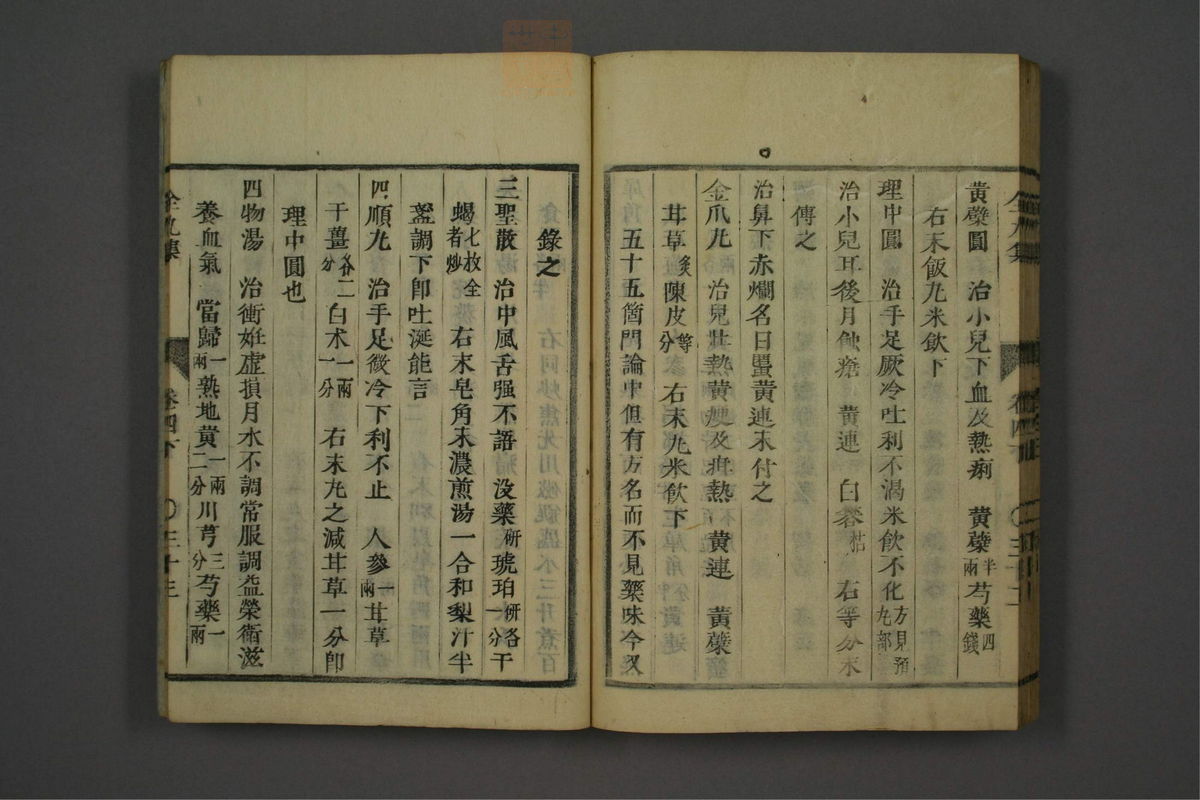 黃蘗圓　治小兒下血及熱痢　黃蘗半兩芍藥四錢
右末飯丸米飲下
理中圓　治手足厥冷吐利不渴米飲不化方見預丸部
治小兒耳後月蝕瘡　黃連　白礬枯　右等分末
傅之
治鼻下赤爛名曰䘌黃連末付之
金爪丸　治兒壯熱黃瘦及疳熱　黃連　黃蘗
甘草炙陳皮等分　右末丸米飲下
五十五箇門論中但有方名而不見藥味今又
錄之
三聖散　治中風舌强不語　沒藥研琥珀研各一分干
蝎七枚全者炒　右末皂角末濃煎湯一合和梨汁半
盞調下卽吐涎能言
四順丸　治手足微冷下利不止　人參一兩甘草
干薑各二分白朮一兩一分　右末丸之減甘草一分卽
理中圓也
四物湯　治衝妊虛損月水不調常服調益榮衞滋
養血氣　當歸一兩熟地黃一兩二分川芎三分芍藥一兩
全九集
卷四下
○三十三